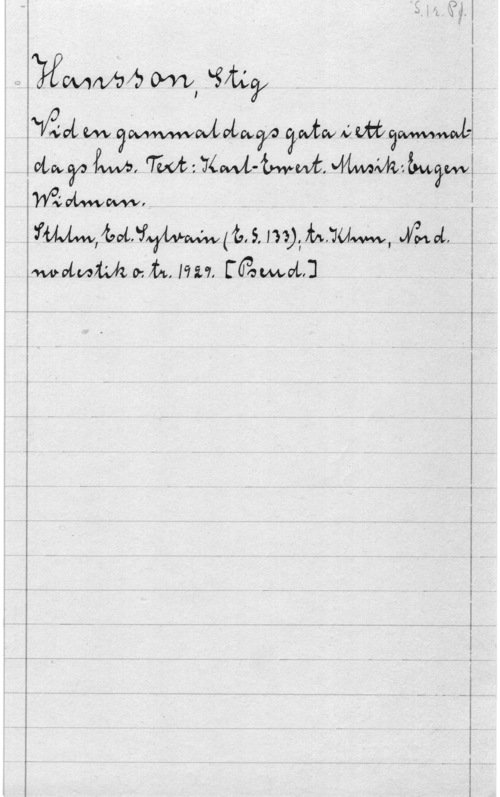 S. 1 r. Pf.
Hansson, Stig
Vid en gammaldags gata i ett gammal-
dags hus. Text: Karl-Ewert. Musik: Eugen
Widman.
Sthlm, Ed. Sylvain (E.S. 133); tr. Khvn, Nord.
nodestik o. tr. 1929. [Pseud.]